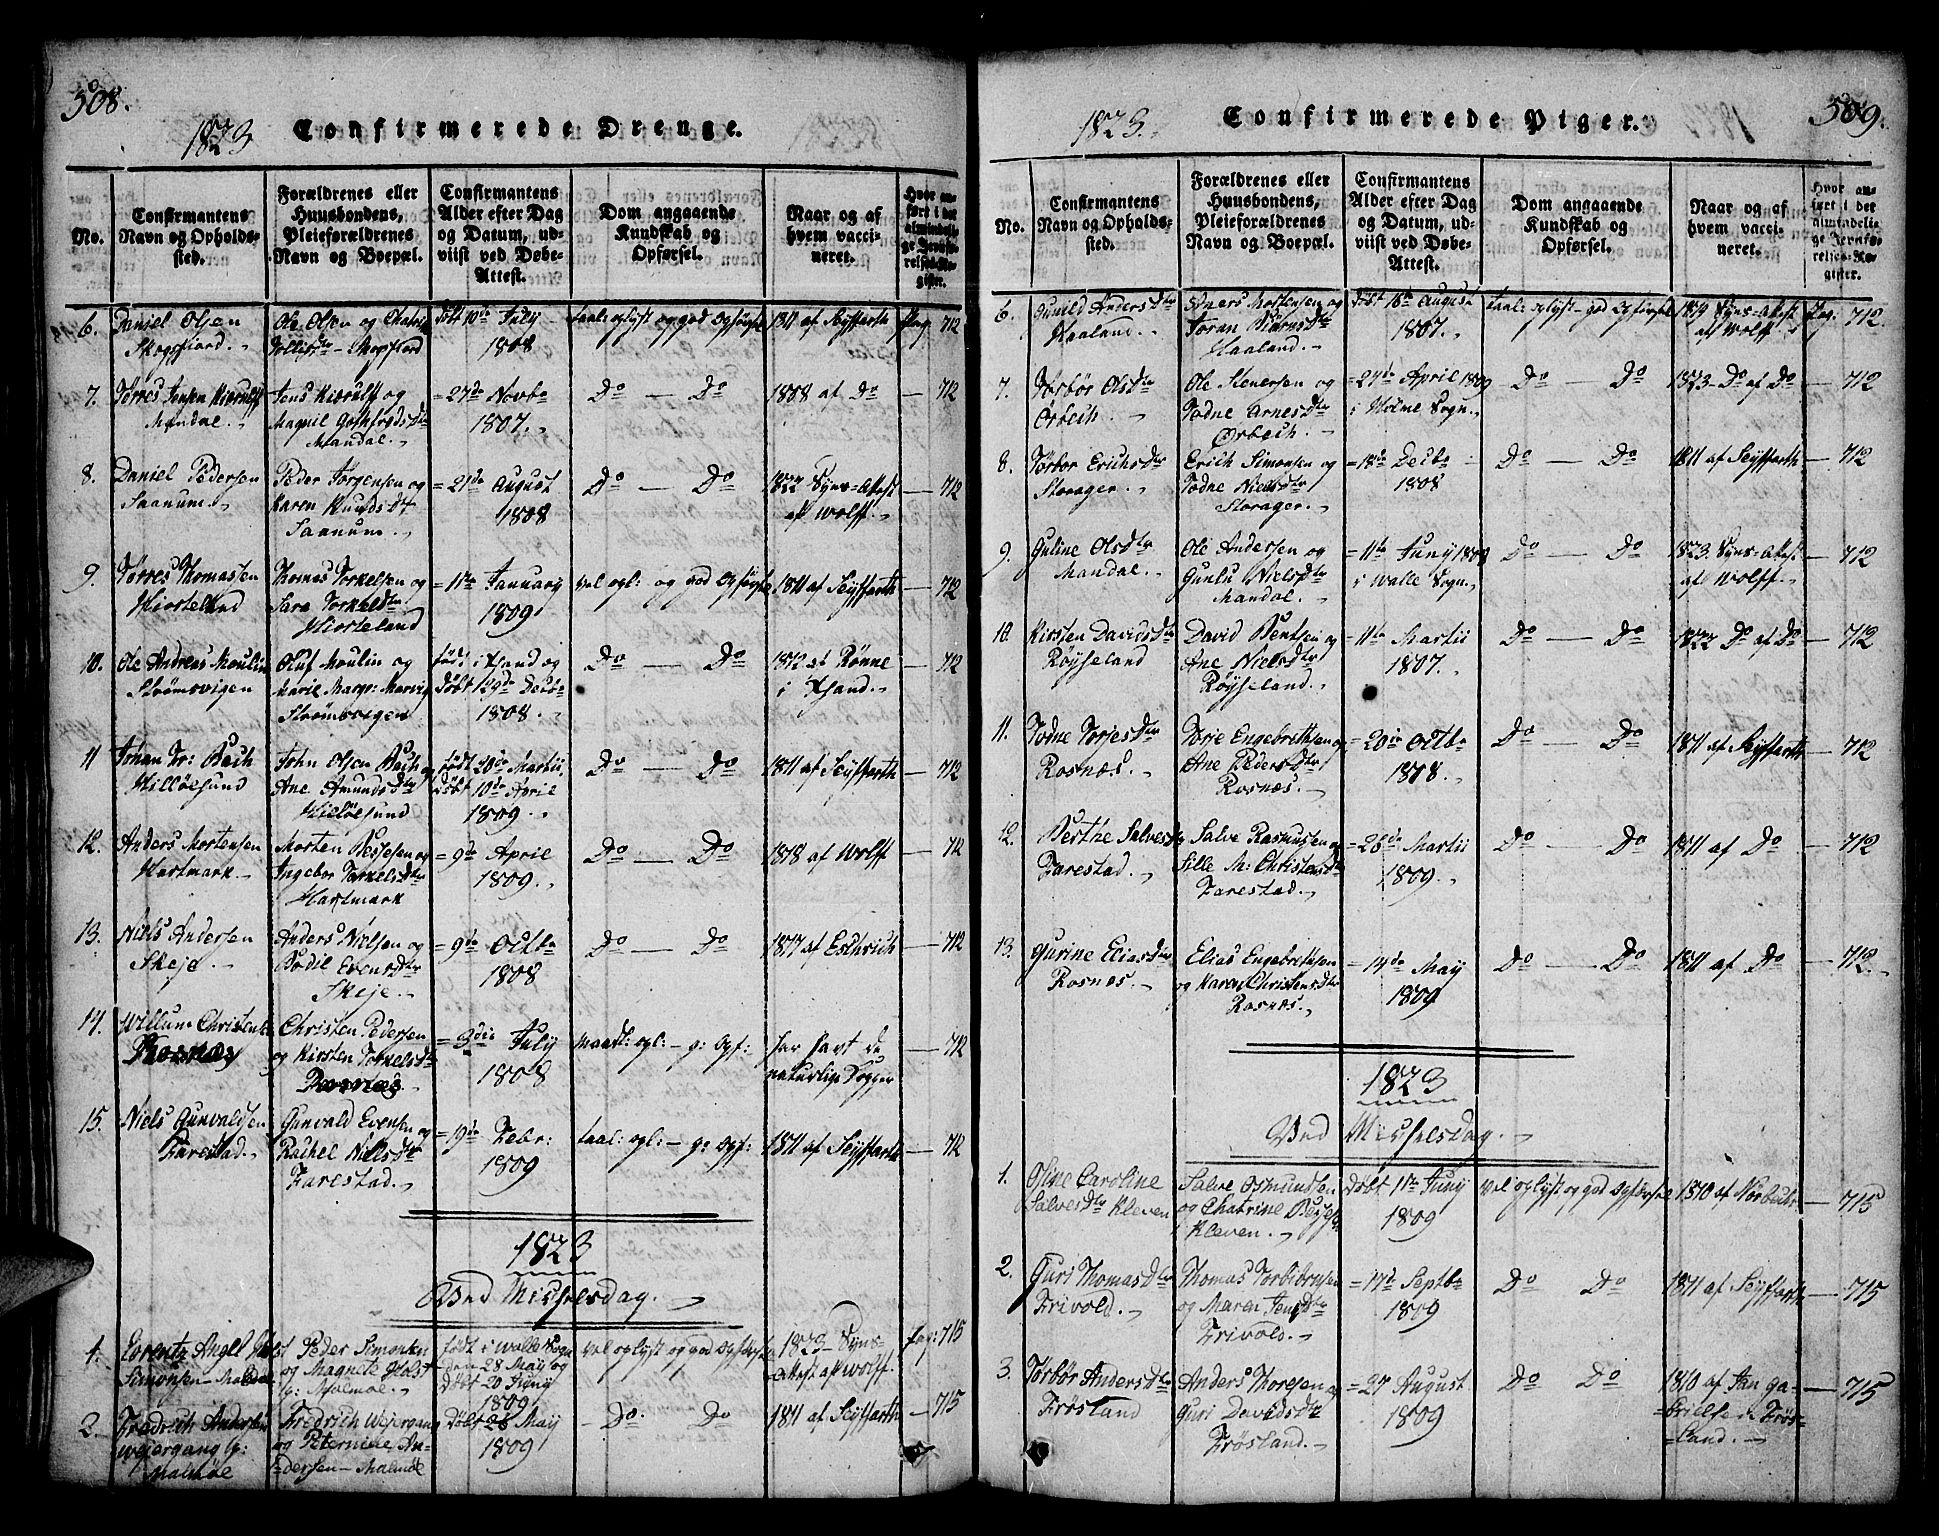 508.
1823
Confirmerede Drenge.
No.
Confirmantens
Navn og Opholds-
sted.
Forældrenes eller
Huusbondens,
Pleieforældrenes
Navn og Boepæl.
Confirmantens
Alder efter Dag
og Datum, ud-
viist ved Døbe-
Attest.
Dom angaaende
Kundskab og
Opførsel.
Naar og af
hvem vacci-
neret.
Hvor an-
ført i det
almindeli-
ge Jevnfø-
relses-Re-
gister.
6.
Daniel Olsen
Skogsfiord.
Ole Olsen og
døbt 10de July
1808
taal: oplyst og god Opførsel
1811 af Seyffarth
Pag: 712
7.
Tørres Jensen Kierulff
Mandal.
Jens Kierulff og
Mandal.
= 27de Novbr
1807.
Do — Do
1808 af Do
— 712
8.
Daniel Pedersen
Saanum.
Peder Jørgensen og
Karen Knudsdtr
Saanum.
= 21de August
1808
Do — Do
1822 Syns-Attest
af Wolff.
— 712
9.
Tørres Thomassen
Hiorteland
Thomas Torkelsen og
Sara Torkelsdtr
Hiorteland
= 11te January
1809
vel opl: og god Opførsel
1811 af Seyffarth
— 712
10.
Ole Andreas Moulin
Strømsvigen
Oluf Moulin og
Marie Margr:
Strømsvigen
født i Xsand og
døbt 29de Decbr
1808.
Do — Do
1812 af Rønne
i Xsand.
— 712
11
Johan Fr: Bech
Hilløesund
John Olsen Bach og
Ane Amundsdtr
Hilløesund
født 20de Martii,
døbt 10de April
1809.
Do — Do
1811 af Seyffarth
— 712
12.
Anders Mortensen
Hartmark
Morten Bessesen og
Ingebor Torkelsdtr
Hartmark
= 9de April
1809.
Do — Do
1818 af Wolff
— 712
13.
Niels Andersen
Skeje.
Anders Nielsen og
Bodil Evensdtr
Skeje.
= 9de Octbr
1808
Do — Do
1817 af Eschrich
— 712
14.
Willum Christens:
Rosnæs
Christen Pedersen
og Kirsten Torkelsdtr
Rosnæs
= 3die July
1808
maadl: opl: — g: Opf:
har havt de
naturlige Kopper
— 712
15.
Niels Gunvaldsen
Farestad.
Gunvald Evensen og
Rachel Nielsdtr
Farestad.
= 19de Febr:
1809
taal: opl: — g: Opf:
1811 af Seyffarth
— 712
1823
Ved Michelsdag.
1.
Lorentz Angel Holst
Simonsen — Malmøe
Peder Simonsen
og Magrete Holst
p: Malmøe.
født i Walle Sogn
den 28 May og
døbt 20 Juny
1809
vel oplyst og god Opførsel
1823 — Syns-
Attest af Wolff.
Pag: 715
2.
Fredrich Andersen
Weiergang p:
Malmøe
Fredrich Weiergang
og Peternille An-
dersen — Malmøe
døbt 28 May
1809
— Do. Do
1811 af Seyffarth
— 715
509.
1823.
Confirmerede Piger.
No.
Confirmantens
Navn og Opholds-
sted.
Forældrenes eller
Huusbondens,
Pleieforældrenes
Navn og Boepæl.
Confirmantens
Alder efter Dag
og Datum, ud-
viist ved Døbe-
Attest.
Dom angaaende
Kundskab og
Opførsel.
Naar og af
hvem vacci-
neret.
Hvor an-
ført i det
almindeli-
ge Jevnfø-
relses-Re-
gister.
6.
Gunild Andersdtr
Haaland.
Anders Mortensen og
Joran Biørnsdtr
Haaland.
døbt 16de August
1807.
taal: oplyst — god Opførsel
1819 Syns-Attest
af Wolff
Pag: 712.
7.
Torbør Olsdtr
Orbech
Ole Stenersen og
Todne Arnesdtr
Ørbech.
= 27de April 1809
i Holme Sogn.
Do — Do
1823 Do af Do
— 712
8.
Torbor Erichsdtr
Storager.
Erich Simonsen og
Todne Nielsdtr
Storager.
= 18de Decbr
1808
Do — Do
1811 af Seyffarth
— 712
9.
Guline Olsdtr
Mandal.
Ole Andersen og
Gunlu Nielsdtr
Mandal.
= 11te Juny 1809
i Walle Sogn.
Do — Do
1823 Syns-Attest
af Wolff.
— 712
10.
Kirsten Davidsdtr
Røyseland
David Bentsen og
Ane Nielsdtr
Røyseland.
= 11te Martii
1807.
Do — Do
1822 Do af Do
— 712
11.
Todne Torjesdtr
Rosnæs.
Torje Engebrethsen og
Ane Pedersdtr
Rosnæs.
= 20de Octbr
1808.
Do — Do
1811 af Seyffarth
— 712
12.
Berthe Salvesdtr
Farestad.
Salve Rasmussen og
Sille M: Christensdtr
Farestad.
= 26de Martii
1809.
Do — Do
1811 af Do
— 712
13.
Gurine Eliasdtr
Rosnæs.
Elias Engebrethsen
og Karen Christensdtr
Rosnæs.
= 14de May
1809
Do — Do
1811 af Do
— 712.
1823
Ved Michelsdag.
1.
Osine Caroline
Salvesdtr Kleven
Salve Osmundsen
og Chatrine
Kleven.
døbt 11te Juny
1809
vel oplyst og god Opførsel
1810 af
— 715
2.
Guri Thomasdtr
Frivold.
Thomas Torbiørnsen
og Maren Jensdtr
Frivold.
= 17de Septbr
1809
Do Do
1811 af Seyffarth
— 715
3.
Torbør Andersdtr
Frøsland
Anders Thoresen og
Guri Davidsdtr
Frøsland.
= 27 August
1809
Do Do
1810 af Jan Ga-
brielsen Frøs-
land.
— 715